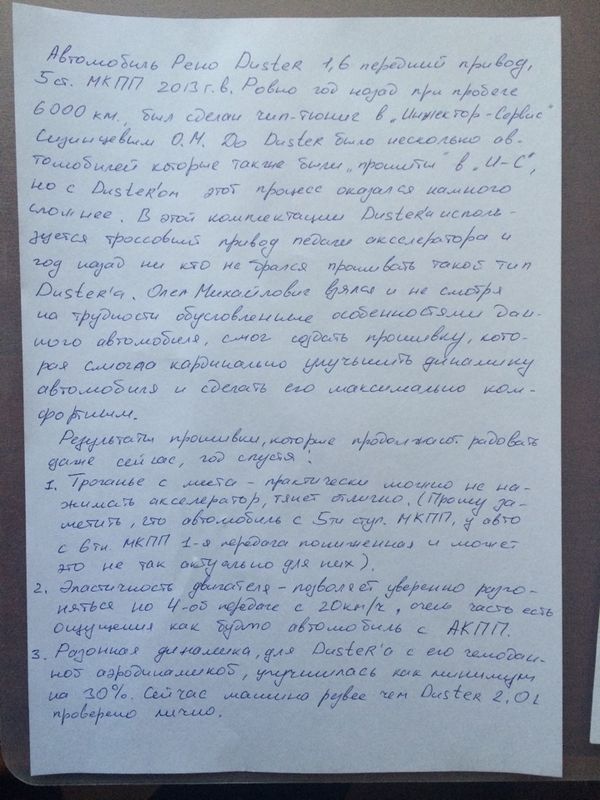 Автомобиль Рено Duster 1,6 передний привод,
5 ст. МКПП 2013 г.в. Ровно год назад при пробеге
6000 км., был сделан чип-тюнинг в „Инжектор-Сервис"
Сизинцевым О.М. До Duster было несколько ав-
томобилей которые также были „прошиты" в „И-С",
но с Duster'ом этот процесс оказался намного
сложнее. В этой комплектации Duster'а исполь-
зуется троссовый привод педали акселератора и
год назад ни кто не брался прошивать такой тип
Duster'а. Олег Михайлович взялся и не смотря
на трудности обусловленные особенностями дан-
ного автомобиля, смог создать прошивку, кото-
рая смогла кардинально улучшить динамику
автомобиля и сделать его максимально ком-
фортным.
Результаты прошивки, которые продолжают радовать
даже сейчас, год спустя:
1. Троганье с места - практически можно не на-
жимать акселератор, тянет отлично. (Прошу за-
метить, что автомобиль с 5ти ступ. МКПП, у авто
с 6ти МКПП 1-я передача пониженная и может
это не так актуально для них).
2. Эластичность двигателя - позволяет уверенно разго-
няться на 4-ой передаче с 20км/ч, очень часто есть
ощущения как будто автомобиль с АКПП.
3. Разгонная динамика, для Duster'а с его чемодан-
ной аэродинамикой, улучшилась как минимум
на 30%. Сейчас машина резвее чем Duster 2,0 l
проверено лично.